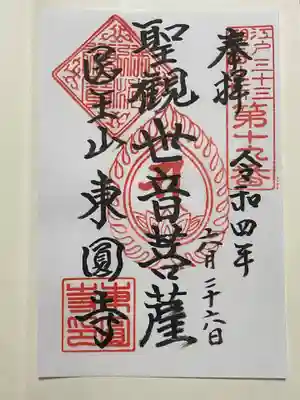 江戸三十三
第十九番
奉拝
令和四年
六月二十六日
聖觀世音菩薩
医王山
東圓寺